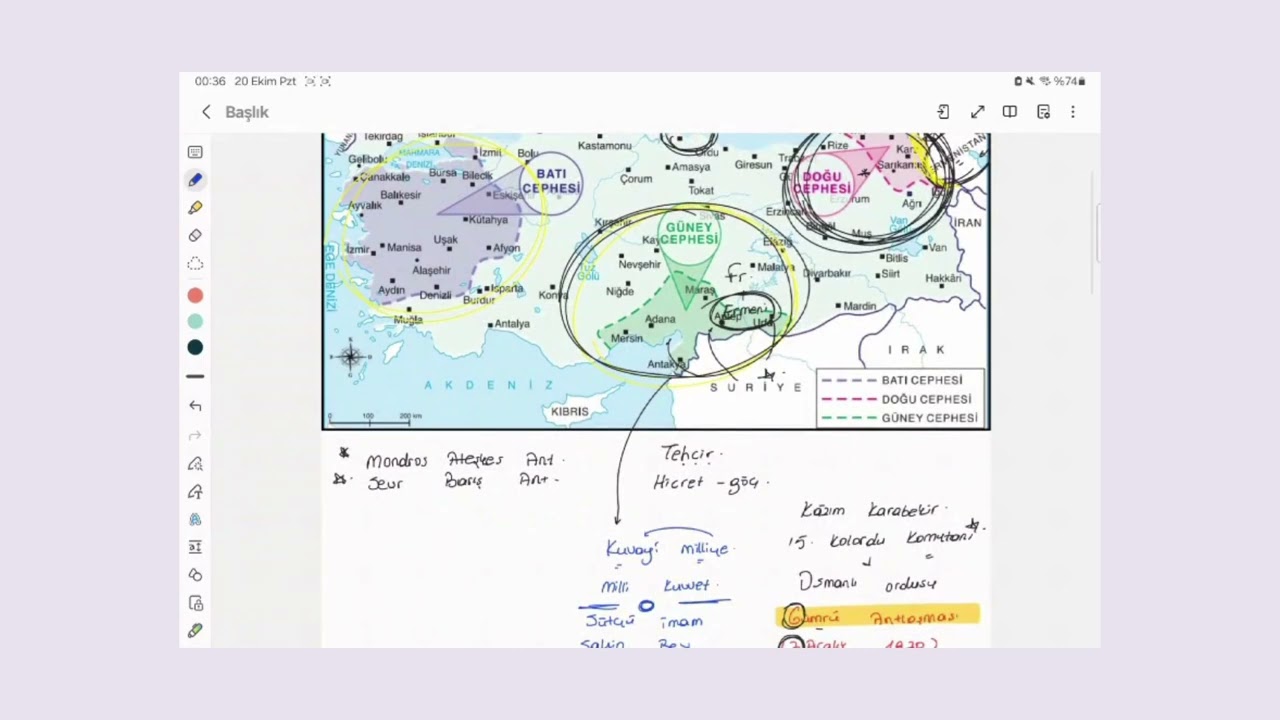 00:36 20 Ekim Pzt %74
Başlık
Tekirdağ İstanbul Kastamonu Ordu Rize Kars
YUNAN ERMENİSTAN
MARMARA DENİZİ İzmit Bolu Amasya Giresun Sarıkamış
Gelibolu Çanakkale Bursa Bilecik Çorum Tokat
BATI CEPHESİ
DOĞU CEPHESİ
Balıkesir Eskişehir Erzurum Ağrı
Ayvalık Kütahya Kırşehir Sivas Erzincan İRAN
GÜNEY CEPHESİ
İzmir Manisa Uşak Afyon Elazığ Muş Van Gölü Van
EGE DENİZİ
Alaşehir Tuz Gölü Nevşehir fr. Malatya Diyarbakır Bitlis Siirt Hakkâri
Aydın Denizli Isparta Burdur Konya Niğde Maraş
Muğla Antalya Adana Ermeni Antep Urfa Mardin
Mersin Antakya
IRAK
AKDENİZ SURİYE
KIBRIS
0 100 200 km
BATI CEPHESİ
DOĞU CEPHESİ
GÜNEY CEPHESİ
Mondros Ateşkes Ant.
Sevr Barış Ant.
Tehcir.
Hicret - göç.
Kuvayi milliye.
Milli kuvvet.
Sütçü imam
Şahin Bey
Kâzım Karabekir.
15. Kolordu Komutanı
Osmanlı ordusu
Gümrü Antlaşması
(3 Aralık 1920)